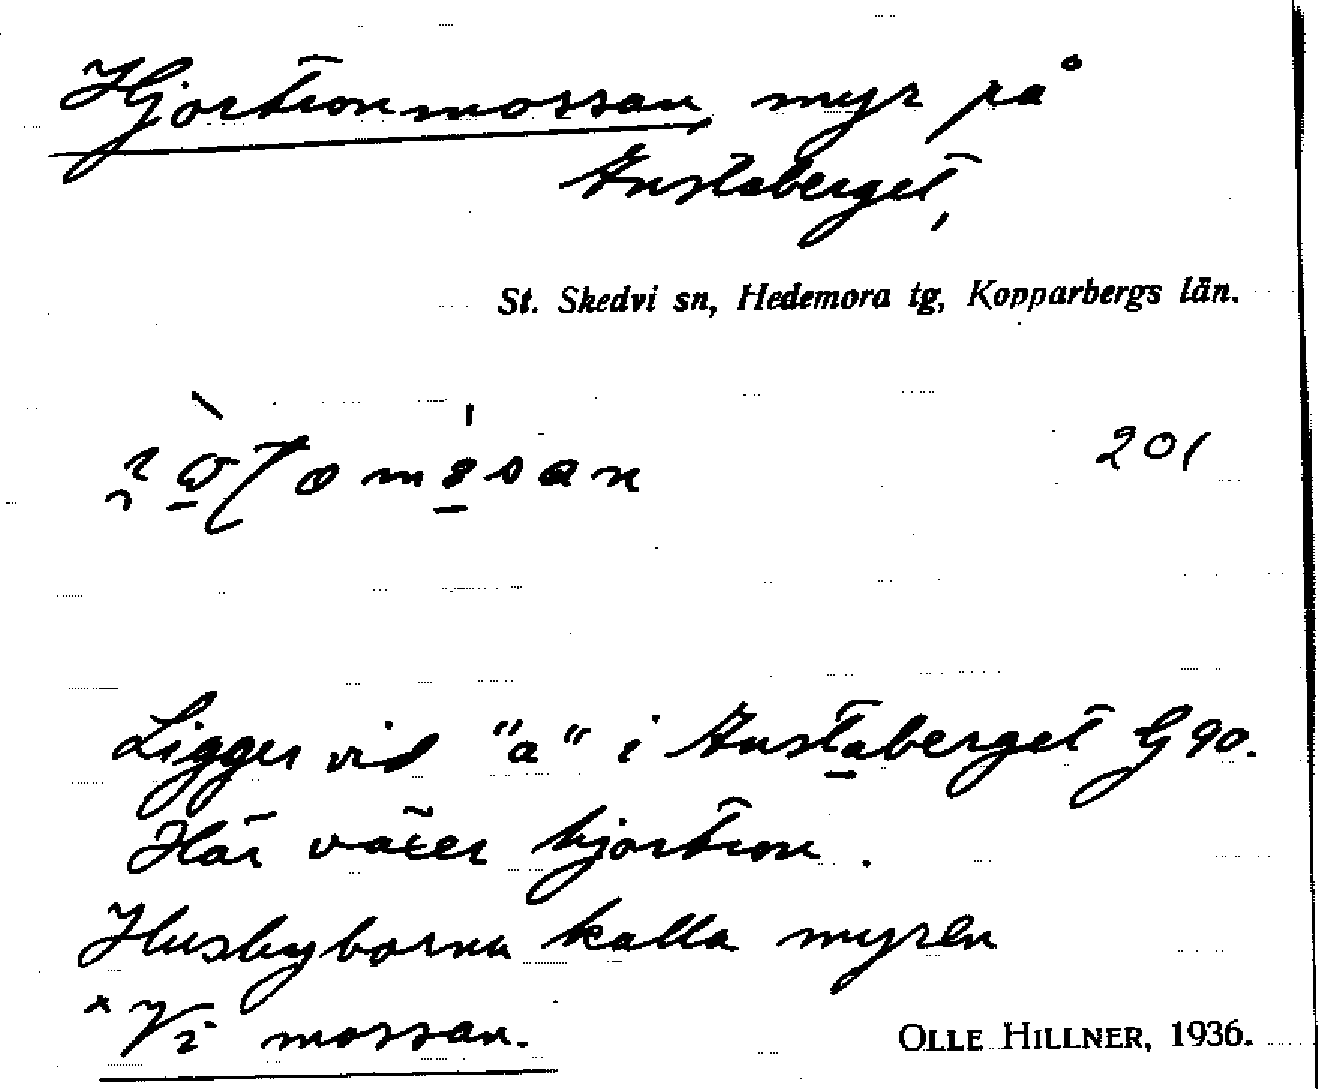 Hjortronmossan, myr på
Anstaberget,
St. Skedvi sn, Hedemora tg, Kopparbergs län.
201
Ligger vid "a" i Anstaberget G 90.
Här växer hjortron.
Husbyborna kalla myren
mossan.
OLLE HILLNER, 1936.